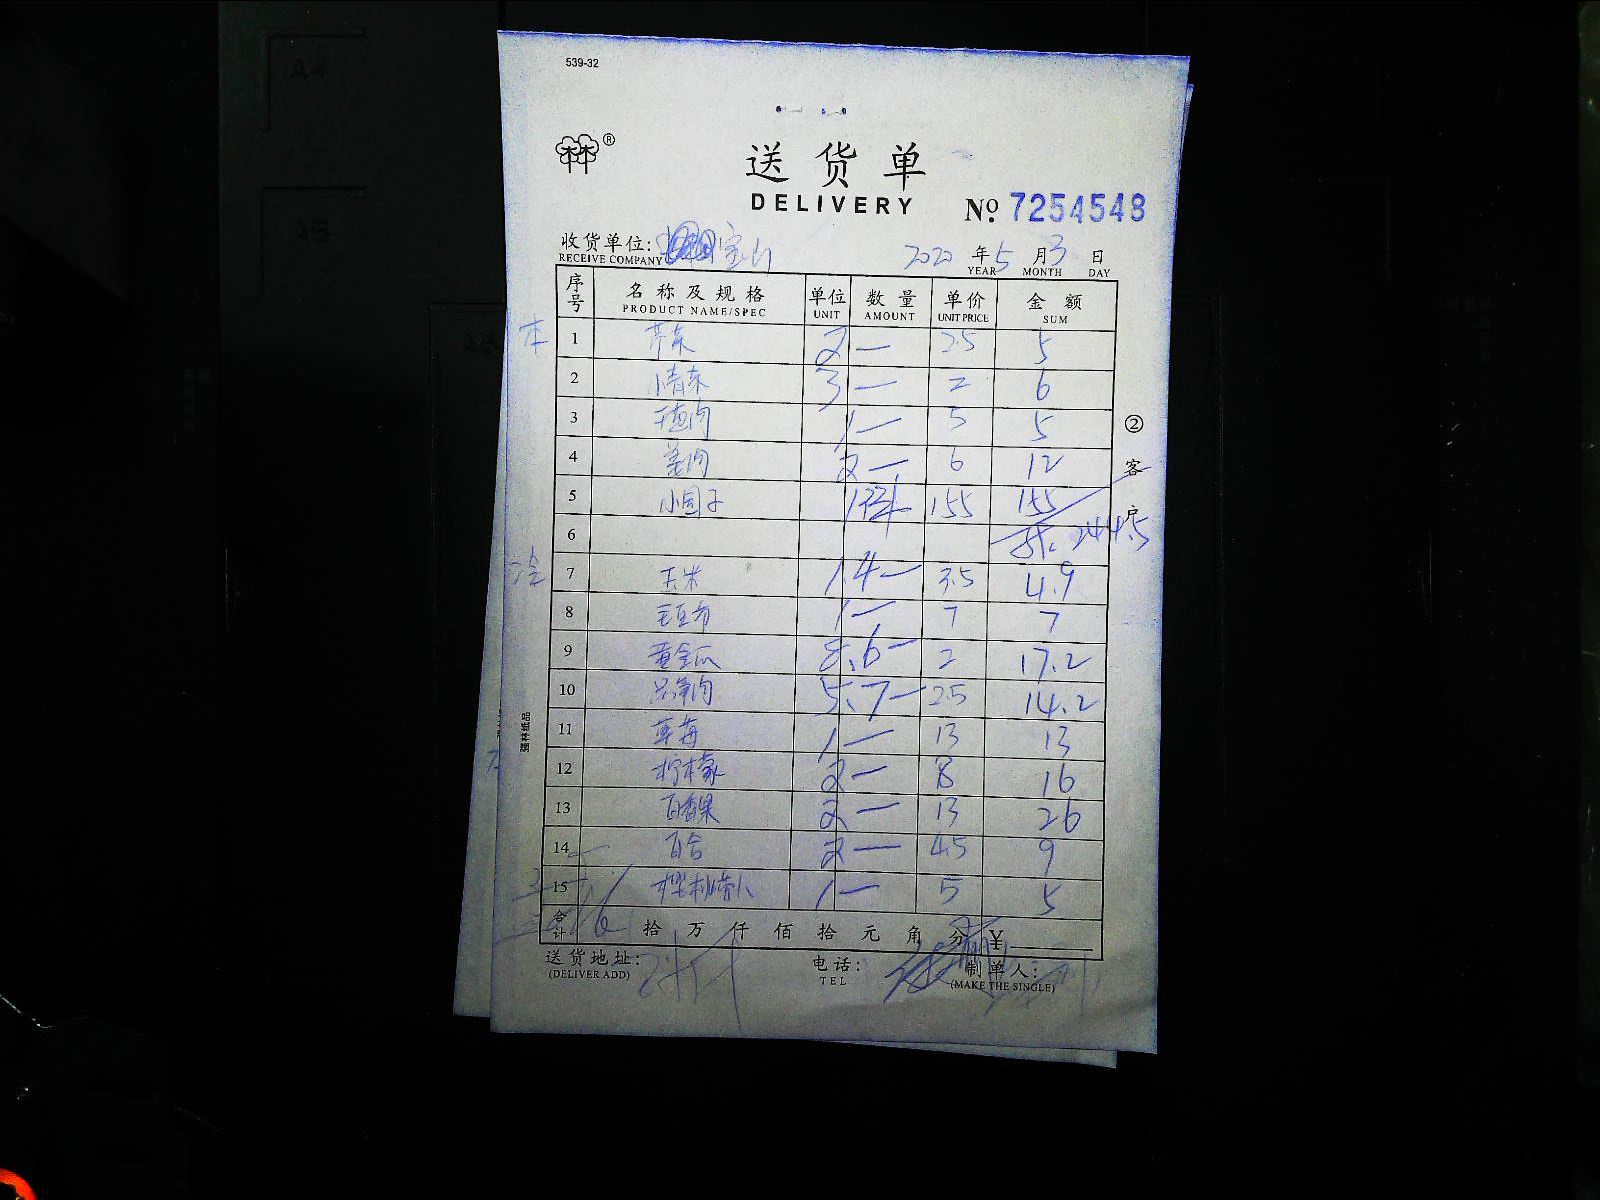 539-32
林林®
送货单
DELIVERY
№ 7254548
收货单位: 宝山 2020 年 5 月 3 日
RECEIVE COMPANY YEAR MONTH DAY
序号 名称及规格 单位 数量 单价 金额
PRODUCT NAME/SPEC UNIT AMOUNT UNIT PRICE SUM
本 1 芹菜 2 — 2.5 5
2 小青菜 3 — 2 6
3 1 — 5 5
4 姜肉 2 — 6 12
5 小园子 1 155 155
6 244.5
冷 7 玉米 1.4 — 3.5 4.9
8 毛豆 1 — 7 7
9 黄金瓜 8.6 — 2 17.2
10 5.7 — 2.5 14.2
11 草莓 1 — 13 13
12 柠檬 2 — 8 16
13 百香果 2 — 13 26
14 百合 2 — 4.5 9
15 1 — 5 5
合计 拾 万 仟 佰 拾 元 角 分 ¥
送货地址: 电话: 制单人:
(DELIVER ADD) TEL (MAKE THE SINGLE)
②客户
强林纸品